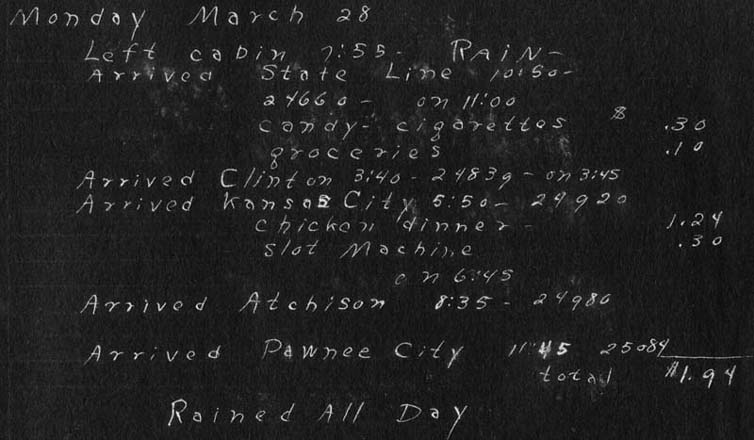 Monday March 28
Left cabin 7:55- RAIN-
Arrived State Line 10:50-
24660- on 11:00
candy- cigarettos $ .30
groceries .10
Arrived Clinton 3:40- 24839- on 3:45
Arrived Kansas City 5:50- 24920
chicken dinner- 1.24
slot Machine .30
on 6:45
Arrived Atchison 8:35- 24980
Arrived Pawnee City 11:45 25084
total $1.94
Rained All Day